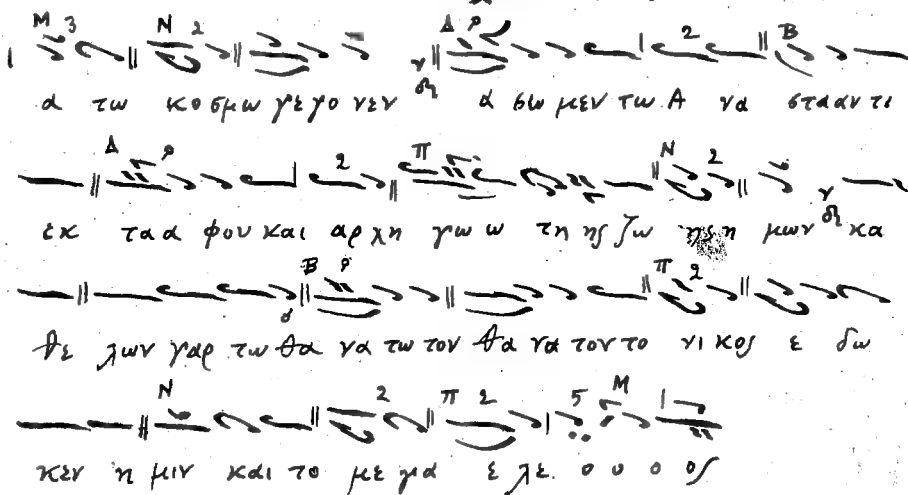 α τω κο σμω γε γο νεν α σω μεν τω Α να στα αν τι
εκ τα α φου και αρ χη γω ω τη ης ζω ης η μων κα
θε λων γαρ τω θα να τω τον θα να τον το νι κος ε δω
κεν η μιν και το με γα ε λε. ο υ ο ο ος